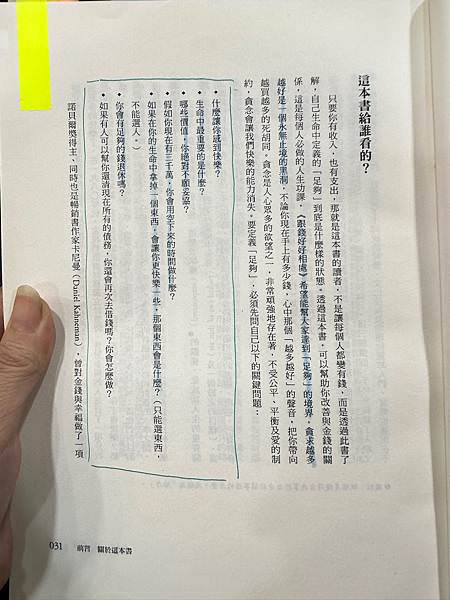 這本書給誰看的？
只要你有收入，也有支出，那就是這本書的讀者，不是讓每個人都變有錢，而是透過此書了
解，自己生命中定義的「足夠」到底是什麼樣的狀態。透過這本書，可以幫助你改善與金錢的關
係，這是每個人必做的人生功課，《跟錢好好相處》希望能幫大家達到「足夠」的境界，貪求越多
越好是一個永無止境的黑洞，不論你現在手上有多少錢，心中那個「越多越好」的聲音，把你帶向
越買越多的死胡同。貪念是人心眾多的欲望之一，非常頑強地存在著，不受公平、平衡及愛的制
約，貪念會讓我們快樂的能力消失。要定義「足夠」，必須先問自己以下的關鍵問題：
• 什麼讓你感到快樂？
• 生命中最重要的是什麼？
• 哪些價值，你絕對不願妥協？
• 假如你現在有三千萬，你會用空下來的時間做什麼？
• 如果在你的生命中拿掉一個東西，會讓你更快樂一些，那個東西會是什麼？（只能選東西，
不能選人。）
• 你會有足夠的錢退休嗎？
• 如果有人可以幫你還清現在所有的債務，你還會再次去借錢嗎？你會怎麼做？
諾貝爾獎得主、同時也是暢銷書作家卡尼曼（Daniel Kahneman），曾對金錢與幸福做了一項
031 前言 關於這本書